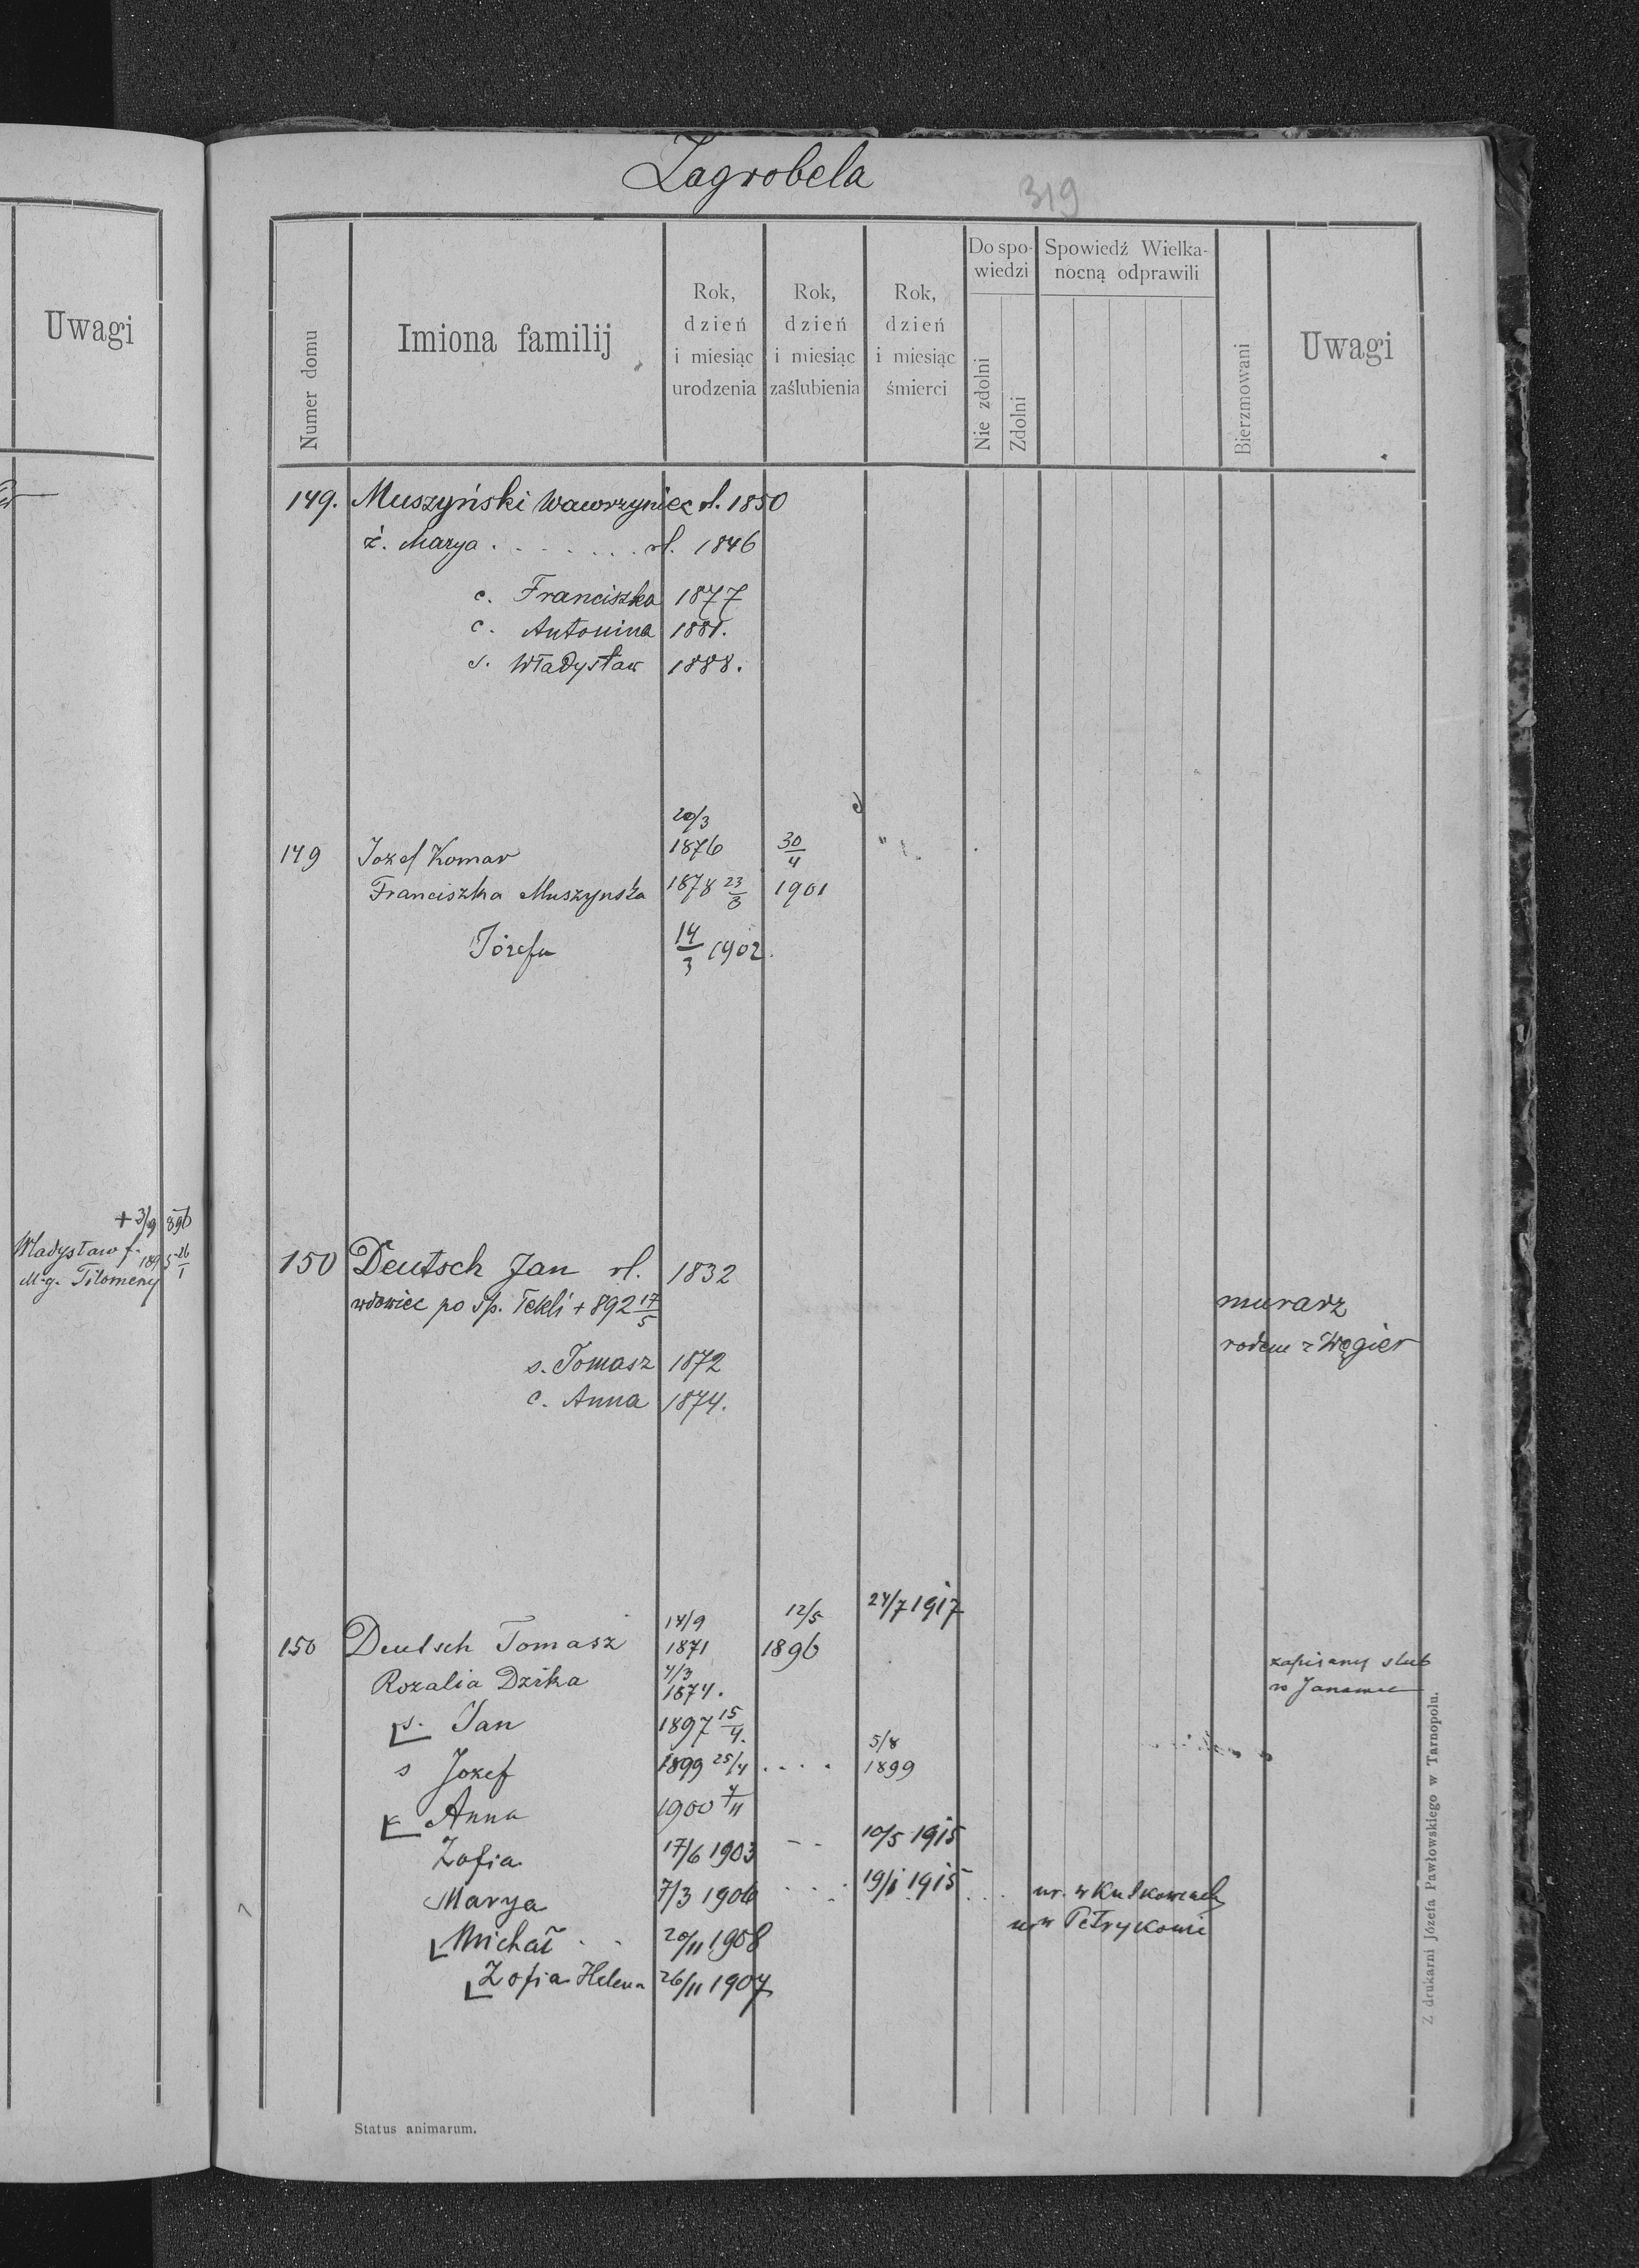 Zagrobela
319
Uwagi
Numer domu
Imiona familij
Rok, dzień i miesiąc urodzenia
Rok, dzień i miesiąc zaślubienia
Rok, dzień i miesiąc śmierci
Do spowiedzi
Nie zdolni
Zdolni
Spowiedź Wielkanocną odprawili
Bierzmowani
Uwagi
149. Muszyński Wawrzyniec rl. 1850
ż. Marya . . . . . . . rl. 1846
c. Franciszka 1877
c. Antonina 1881.
s. Władysław 1888.
20/3
149 Jozef Komar 1876 30/4
Franciszka Muszynska 1878 23/3 1901
Józefa 14/3 1902.
+ 3/9 896
Władysław f. 1895 26/1
M.g. Filomeny
150 Deutsch Jan rl. 1832
wdowiec po śp. Tekli + 892 17/5
murarz
rodem z Węgier
s. Tomasz 1872
c. Anna 1874.
14/9 12/5 24/7 1917
150 Deutsch Tomasz 1871 1896
zapisany slub
w
4/3
Rozalia Dzika 1874.
s. Jan 1897 15/4.
5/8
s Jozef 1899 25/4 . . . . 1899
c Anna 1900 4/11
Zofia 17/6 1903 - - 10/5 1915
Marya 7/3 1906 . . . . 19/1 1915 . . . ur. w Kutkowcach
Michał . . 20/11 1908 ur w Petrykowie
Zofia Helena 26/11 1907
Status animarum.
Z drukarni Józefa Pawłowskiego w Tarnopolu.